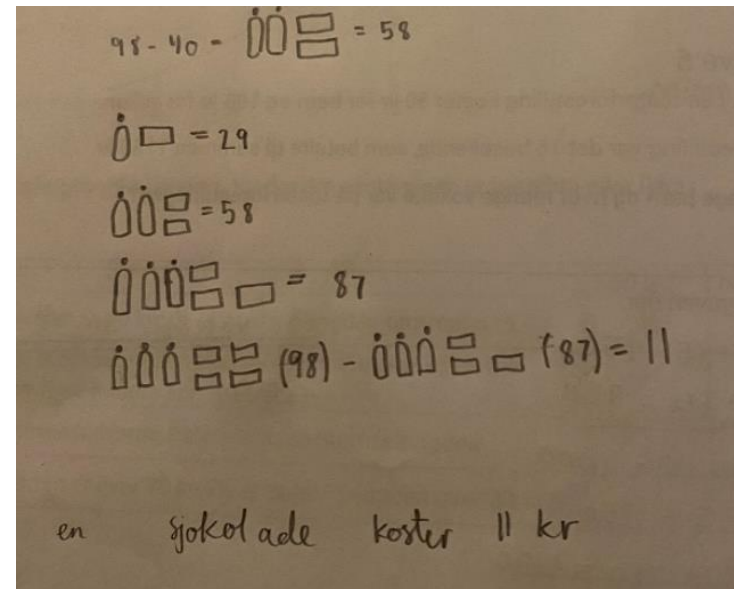 98 - 40 - = 58
= 29
= 58
= 87
(98) - (87) = 11
en sjokolade koster 11 kr